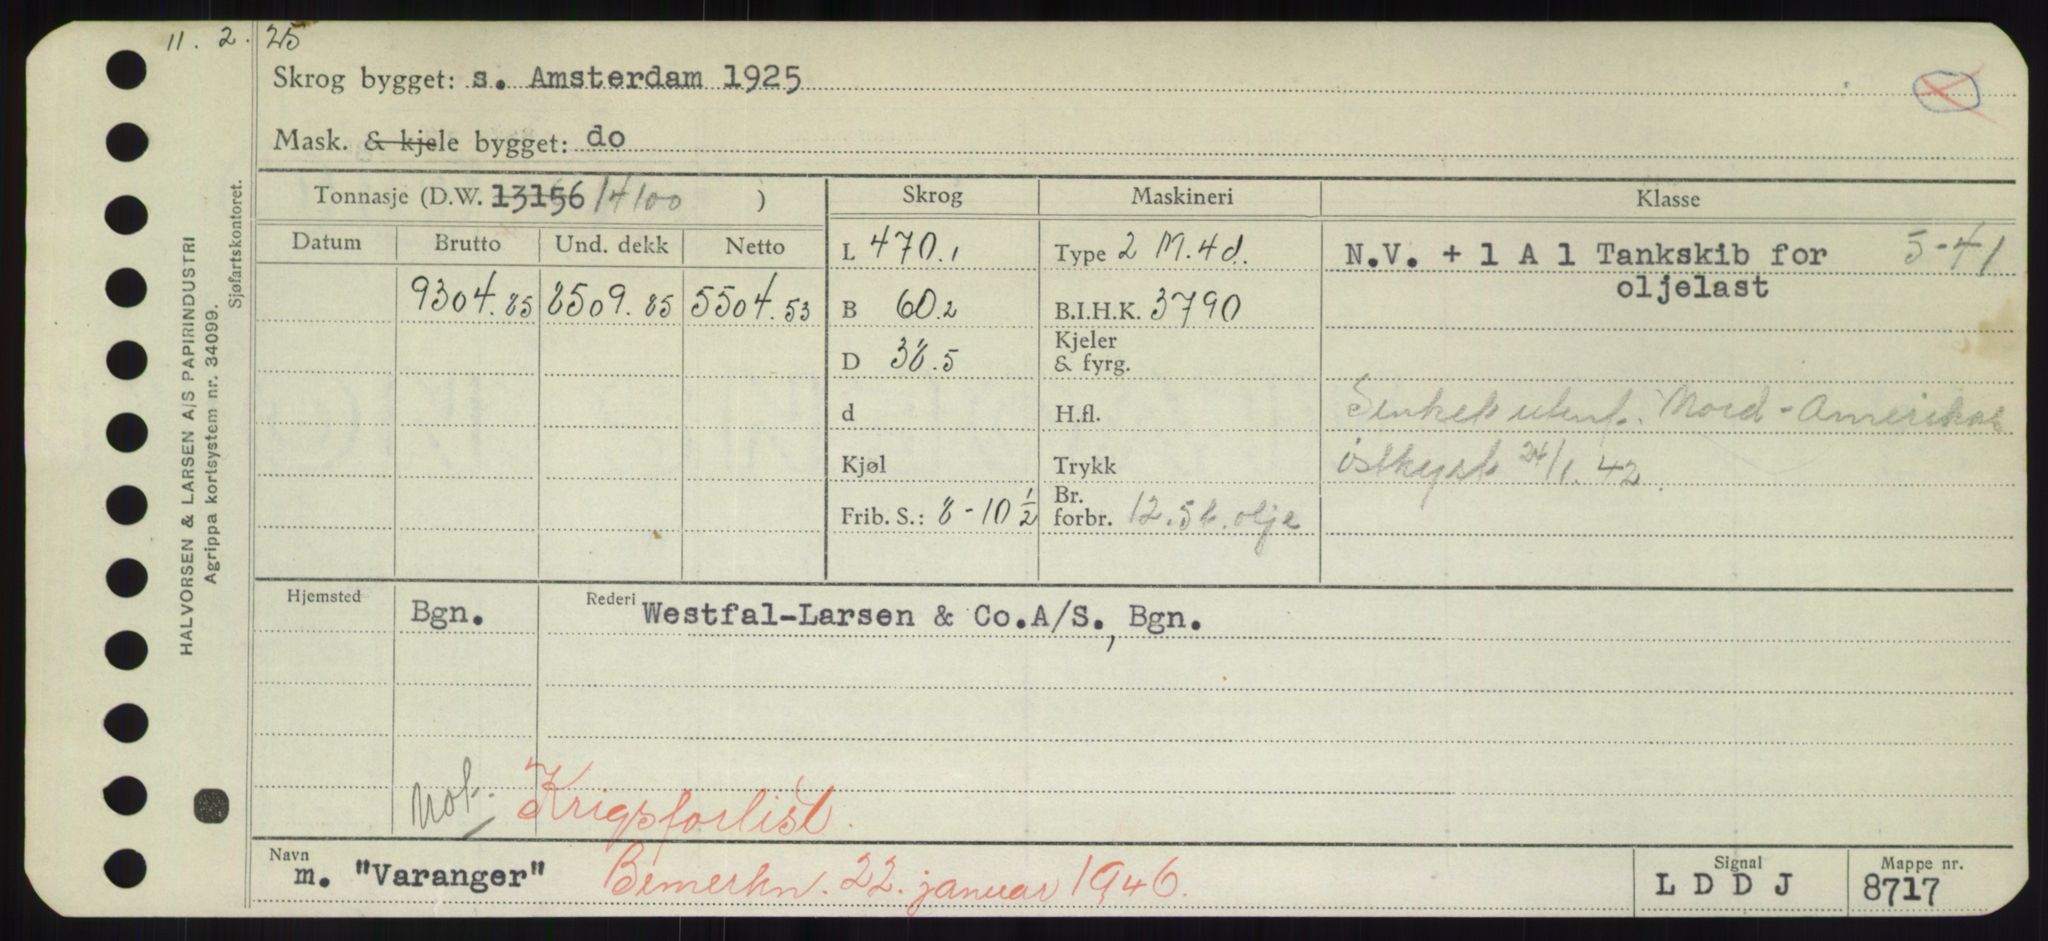 11. 2. 25
Skrog bygget: s. Amsterdam 1925
Mask. & kjele bygget: do
Tonnasje (D.W. 13156 14100 )
Skrog
Maskineri
Klasse
Datum Brutto Und. dekk Netto
9304.85 8509.85 5504.53
L 470.1
B 60.2
D 38.5
d
Kjøl
Frib. S.: 8-10 1/2
Type 2 M. 4 d.
B.I.H.K. 3790
Kjeler
& fyrg.
H.fl.
Trykk
Br.
forbr. 12.5 t. olje
N.V. + 1 A 1 Tankskib for 5-41
oljelast
Senket utenf. Nord-Amerikas
østkyst 24/1.42.
Hjemsted Bgn. Rederi Westfal-Larsen & Co.A/S., Bgn.
Not. Krigsforlist.
Navn m. "Varanger" Bemerkn. 22. januar 1946.
Signal LDDJ
Mappe nr. 8717
HALVORSEN & LARSEN A/S PAPIRINDUSTRI
Agrippa kortsystem nr. 34099.
Sjøfartskontoret.